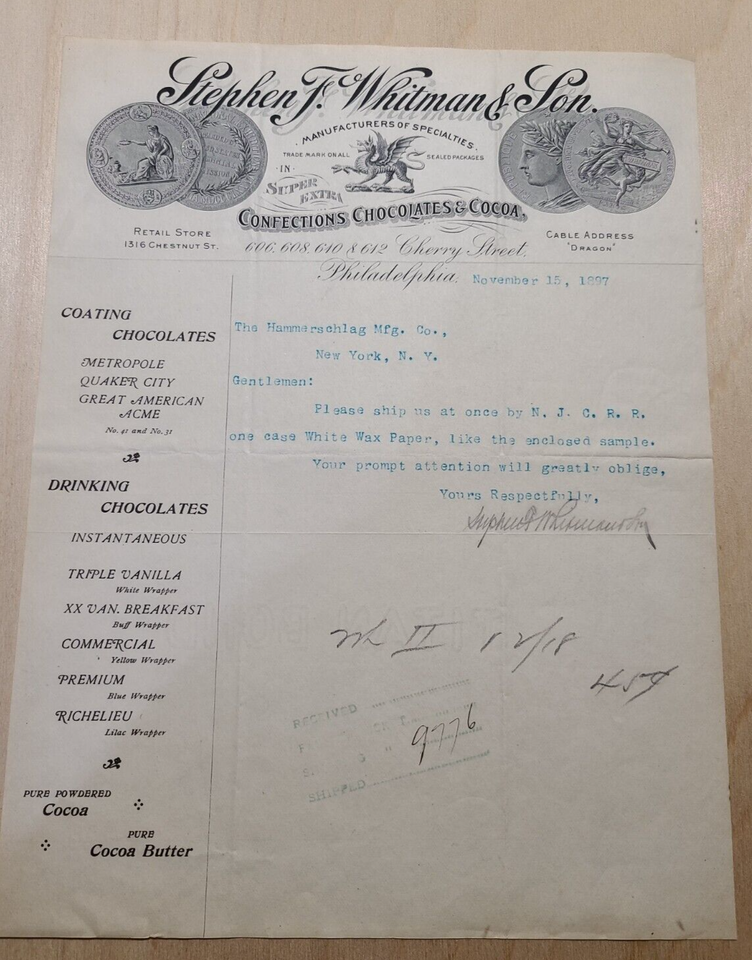 Stephen F. Whitman & Son.
MANUFACTURERS OF SPECIALTIES
TRADE MARK ON ALL SEALED PACKAGES
IN
SUPER
EXTRA
CONFECTIONS, CHOCOLATES & COCOA,
RETAIL STORE
1316 CHESTNUT ST.
606, 608, 610 & 612 Cherry Street,
CABLE ADDRESS
"DRAGON"
Philadelphia, November 15, 1897
COATING
CHOCOLATES
METROPOLE
QUAKER CITY
GREAT AMERICAN
ACME
No. 41 and No. 31
DRINKING
CHOCOLATES
INSTANTANEOUS
TRIPLE VANILLA
White Wrapper
XX VAN. BREAKFAST
Buff Wrapper
COMMERCIAL
Yellow Wrapper
PREMIUM
Blue Wrapper
RICHELIEU
Lilac Wrapper
PURE POWDERED
Cocoa
PURE
Cocoa Butter
The Hammerschlag Mfg. Co.,
New York, N. Y.
Gentlemen:
Please ship us at once by N. J. C. R. R.
one case White Wax Paper, like the enclosed sample.
Your prompt attention will greatly oblige,
Yours Respectfully,
Stephen F Whitman & Son
II 12/18
RECEIVED
9776
SHIPPED